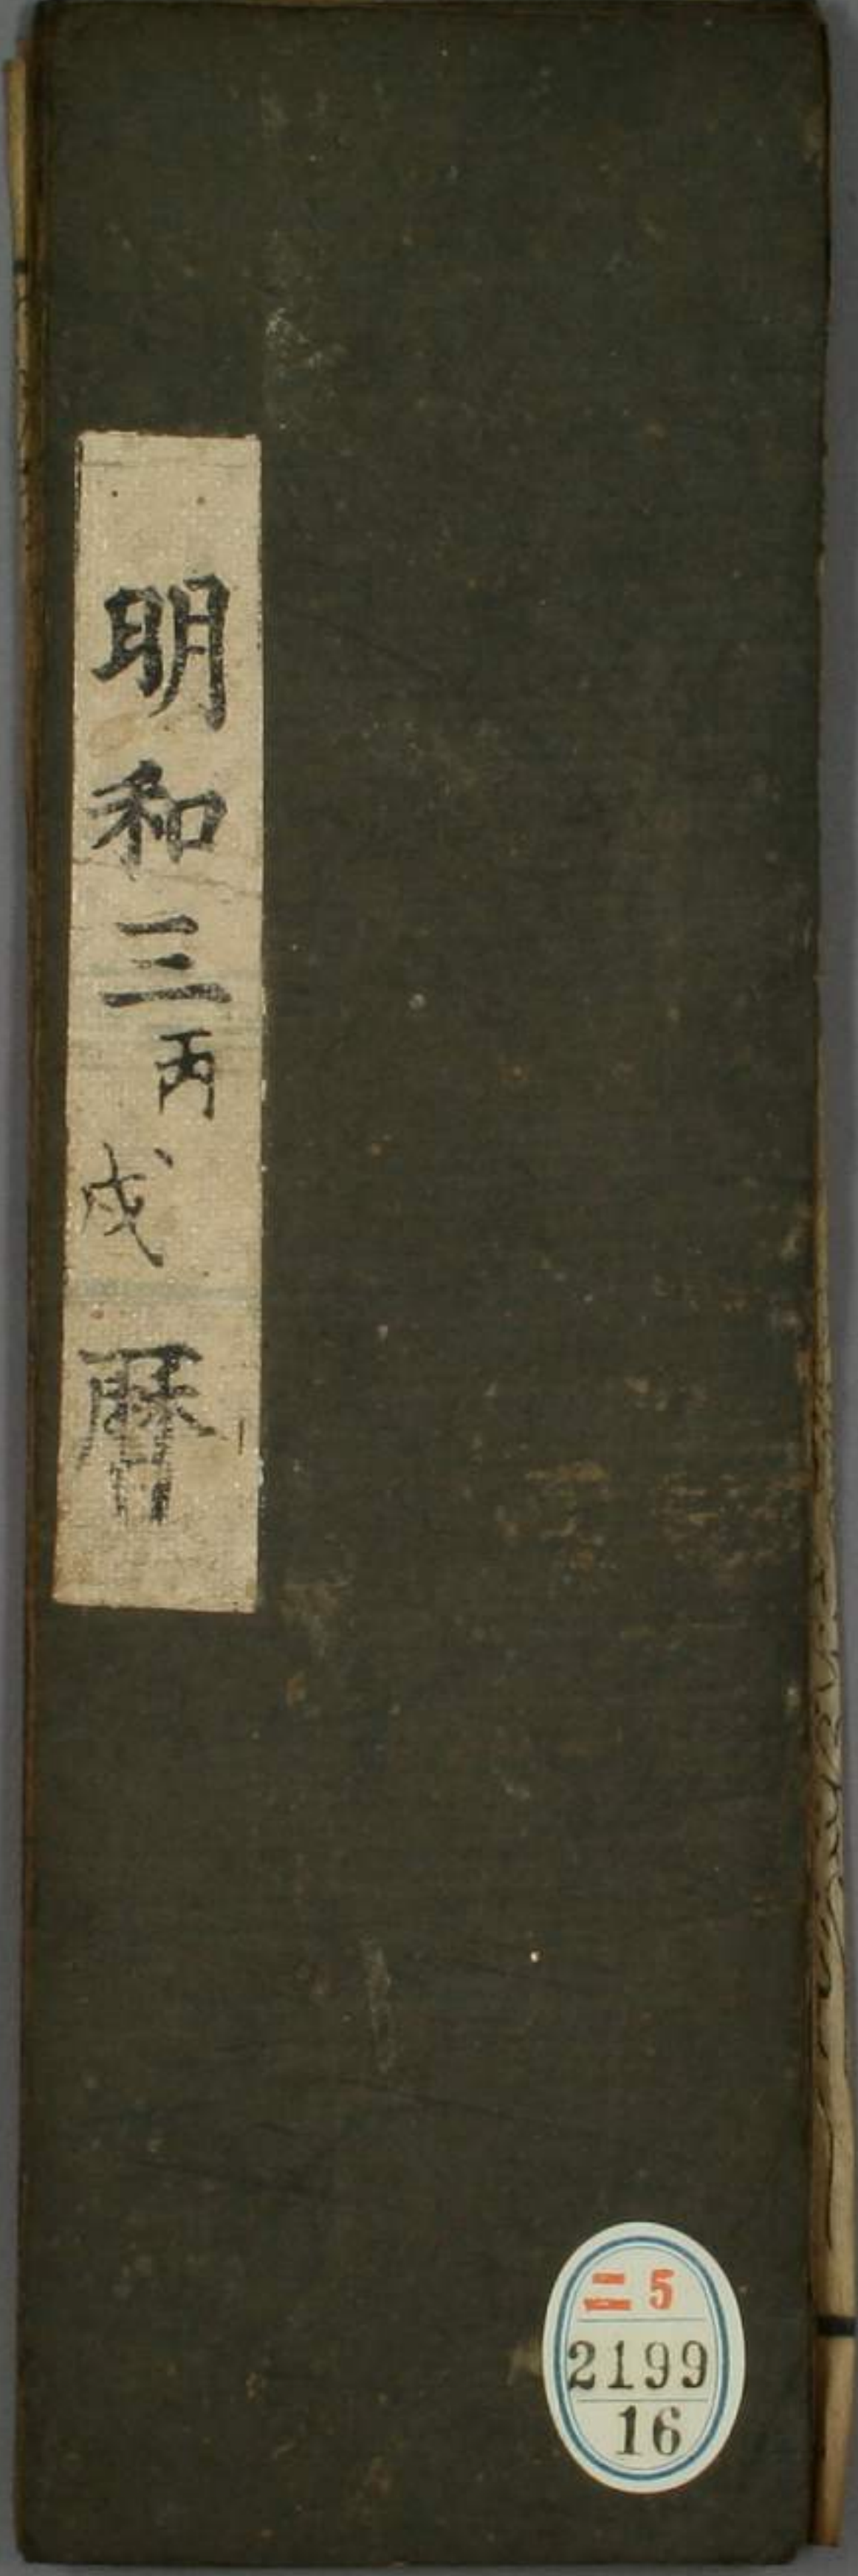 明和三丙戌暦
ニ5
2199
16